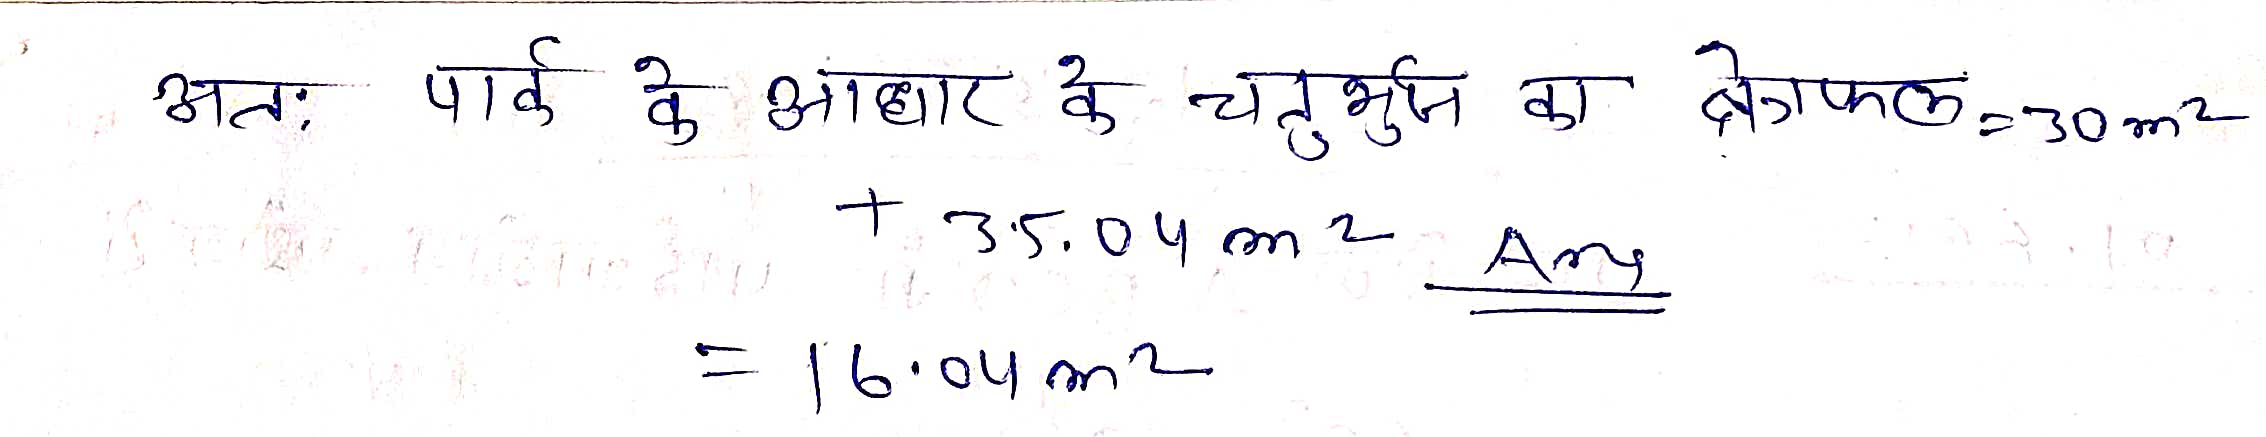 अतः पार्क के आधार के चतुर्भुज का क्षेत्रफल = 30 m²
+ 35.04 m² Ans
= 16.04 m²